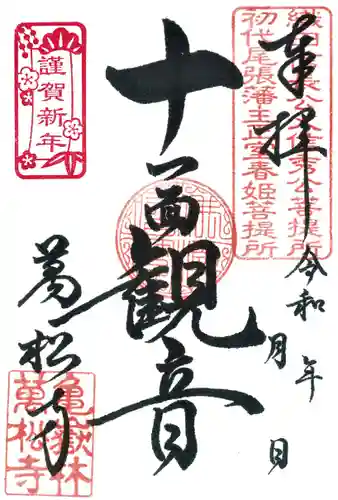 奉拝
令和 年
月 日
織田信長公父信秀公菩提所
初代尾張藩主正室春姫菩提所
十一面観音
謹賀新年
萬松寺
亀嶽林
萬松寺